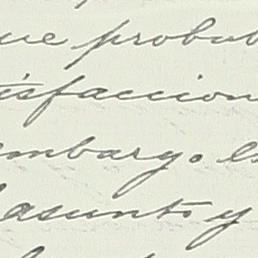 ue probab
tisfaccion
embargo. E
asunto y